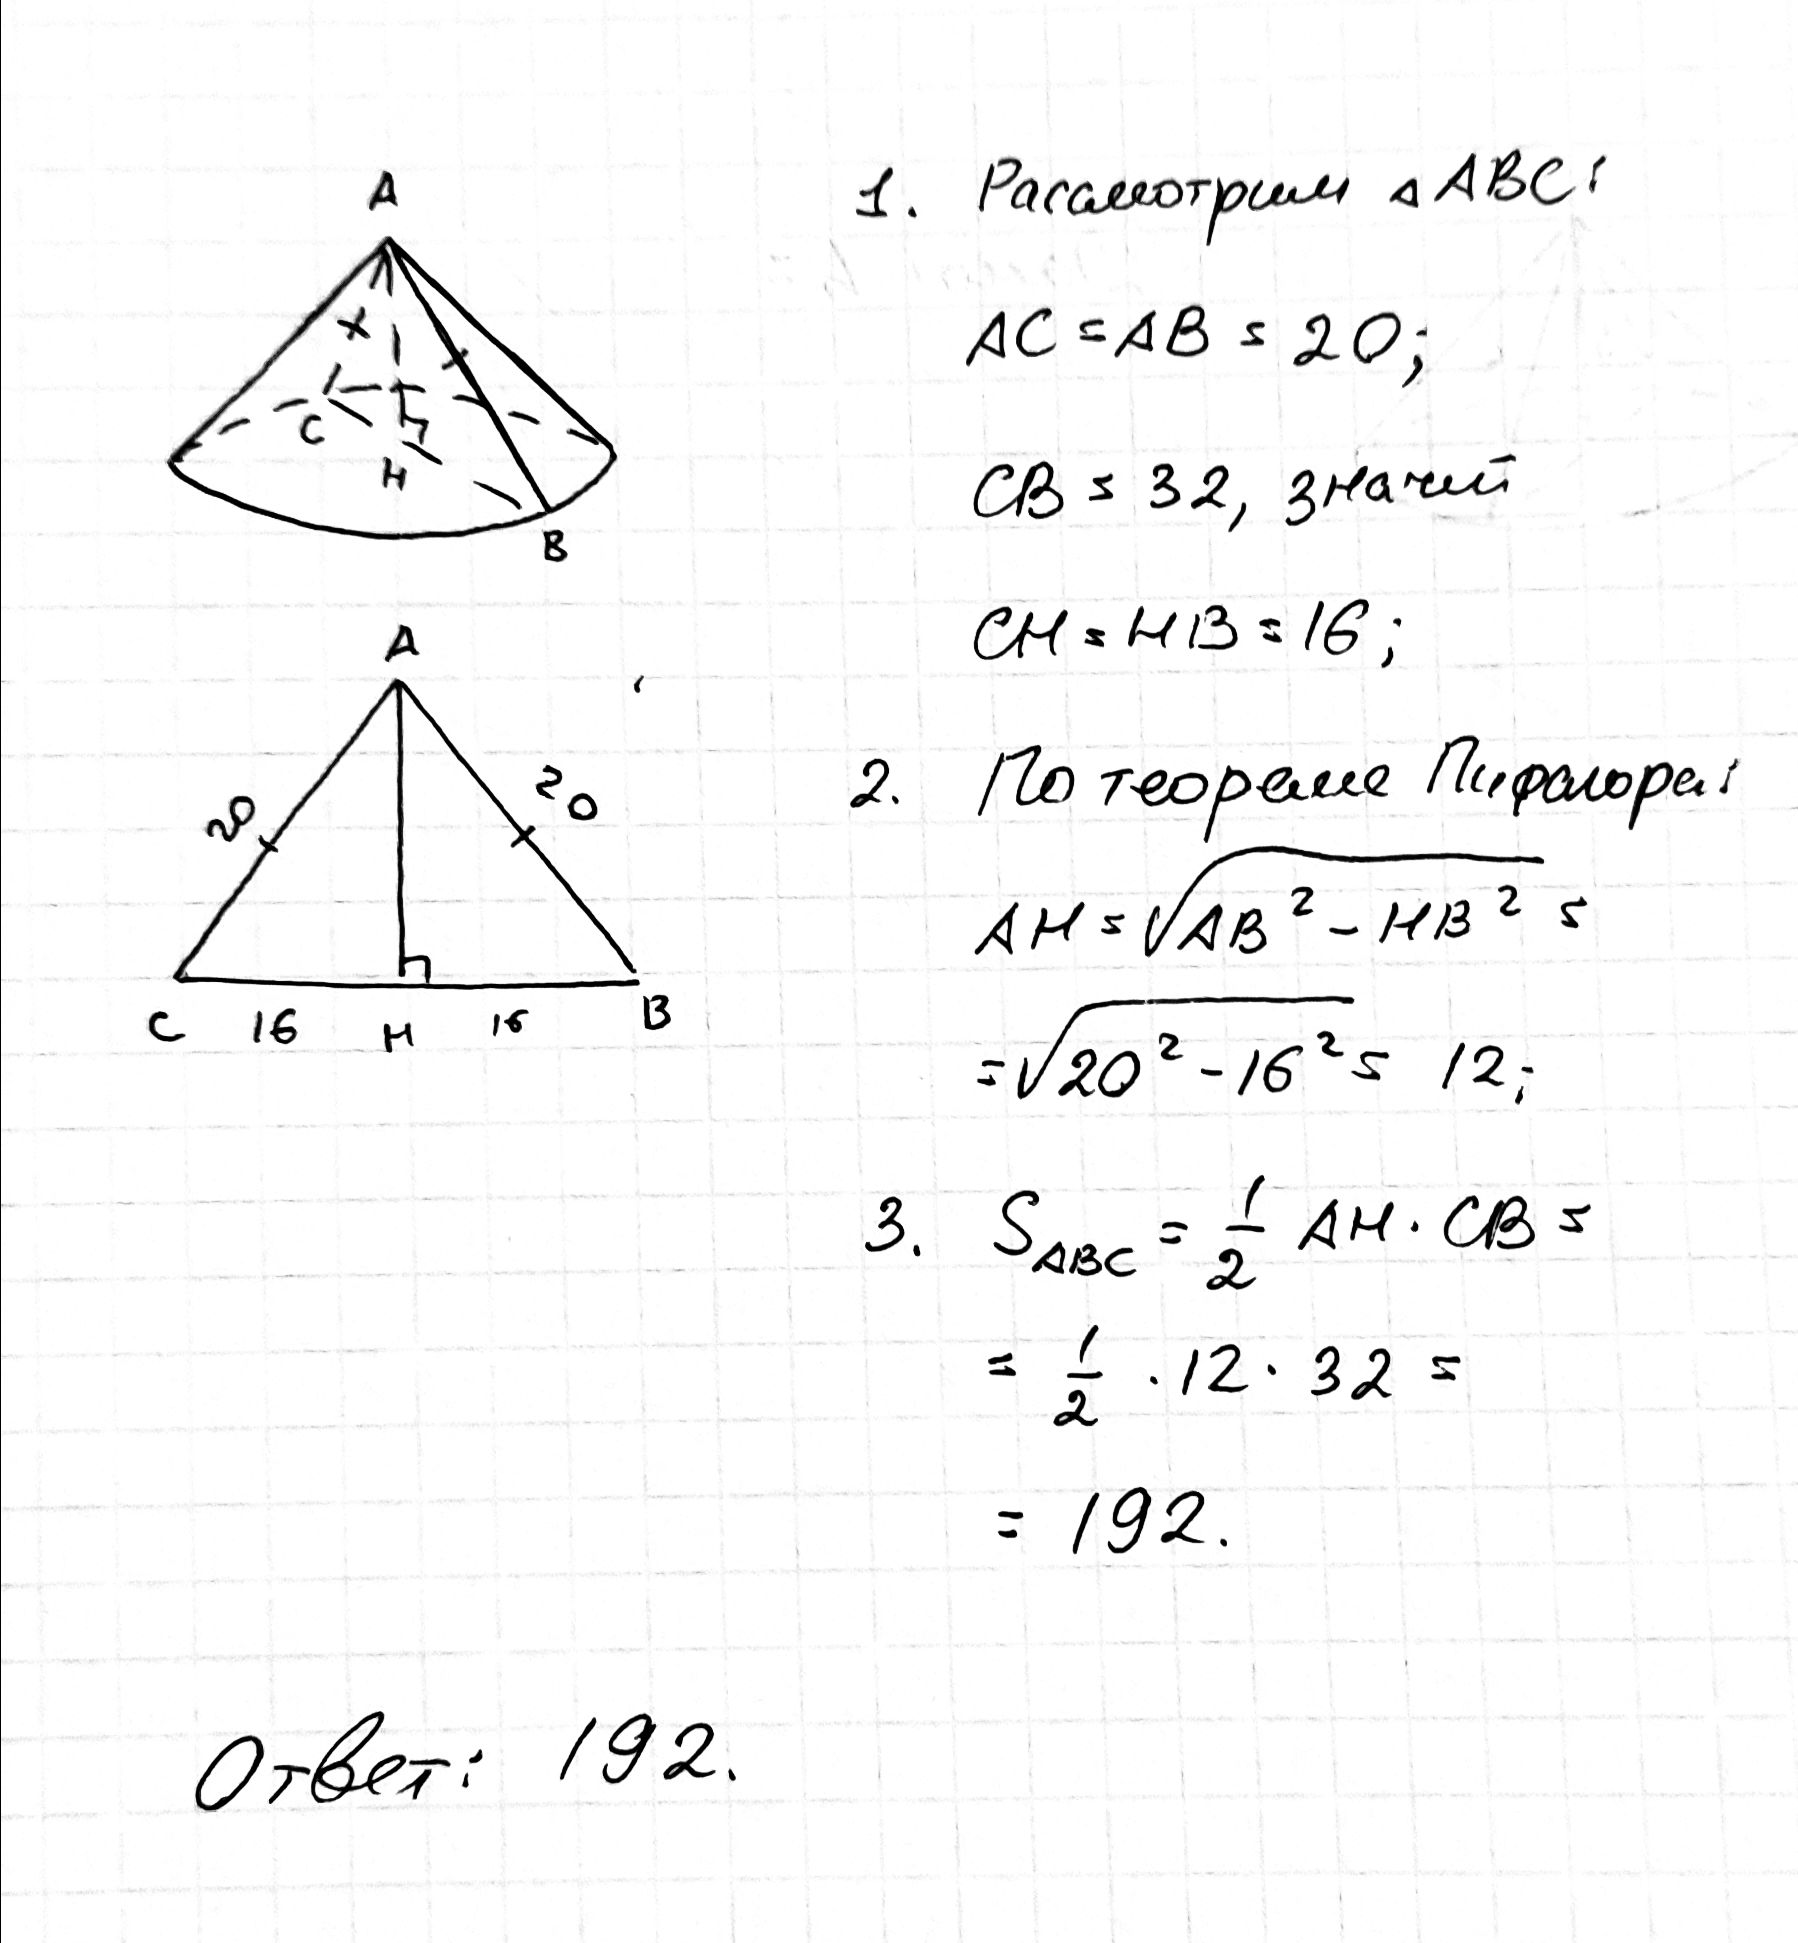 A
x
C
H
B
A
20
20
C 16 H 16 B
1. Рассмотрим △ABC:
AC = AB = 20;
CB = 32, значит
CH = HB = 16;
2. По теореме Пифагора:
AH = √AB² - HB² =
= √20² - 16² = 12;
3. S_ABC = 1/2 AH · CB =
= 1/2 · 12 · 32 =
= 192.
Ответ: 192.